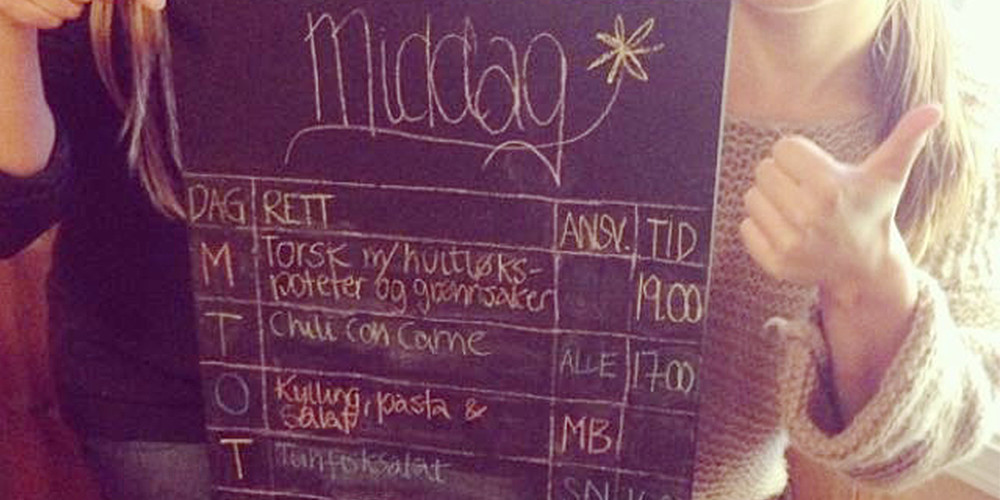 Middag
DAG RETT ANSV. TID
M Torsk m/hvitløks-
poteter og grønnsaker 19.00
T Chili Con Carne ALLE 17.00
O Kylling, pasta &
Salat MB
T Tunfisksalat SN